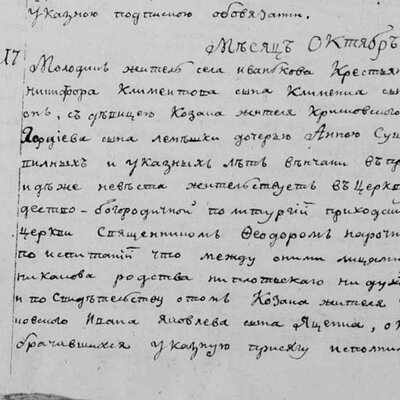 указною подпискою обовязати.
Мѣсяцъ Октябрь
17 Молодикъ житель села иванкова Крестья
никифора Климентова сына Климения сын
онъ, съ дѣвицею Козака жителя
Гордіева сына лемѣшки дочерью Анною
и указныхъ лѣтъ вѣнчани въ
идѣже невѣста жительствуетъ въ Церкви
дество-богородичной по литургіи приходск
церкви Священникомъ Феодоромъ нароч
по испитаніи что между оними лицами
никакова родства ни плотьскаго ни ду
и по свидѣтельству о томъ Козака жителя
новского Ивана Яковлева сына Яценка, о
брачившихся указную присягу исполни